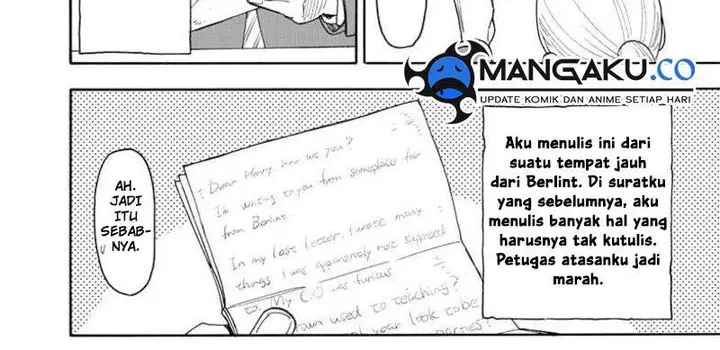 MANGAKU.CO
UPDATE KOMIK DAN ANIME SETIAP HARI
AH.
JADI
ITU
SEBAB-
NYA.
Dear Henry, how are you?
I'm writing to you from someplace far
from Berlint.
In my last letter, I wrote many
things I was apparently not supposed
to. My C.O was furious.
used to teaching?
your look to be
parties?
Aku menulis ini dari
suatu tempat jauh
dari Berlint. Di suratku
yang sebelumnya, aku
menulis banyak hal yang
harusnya tak kutulis.
Petugas atasanku jadi
marah.